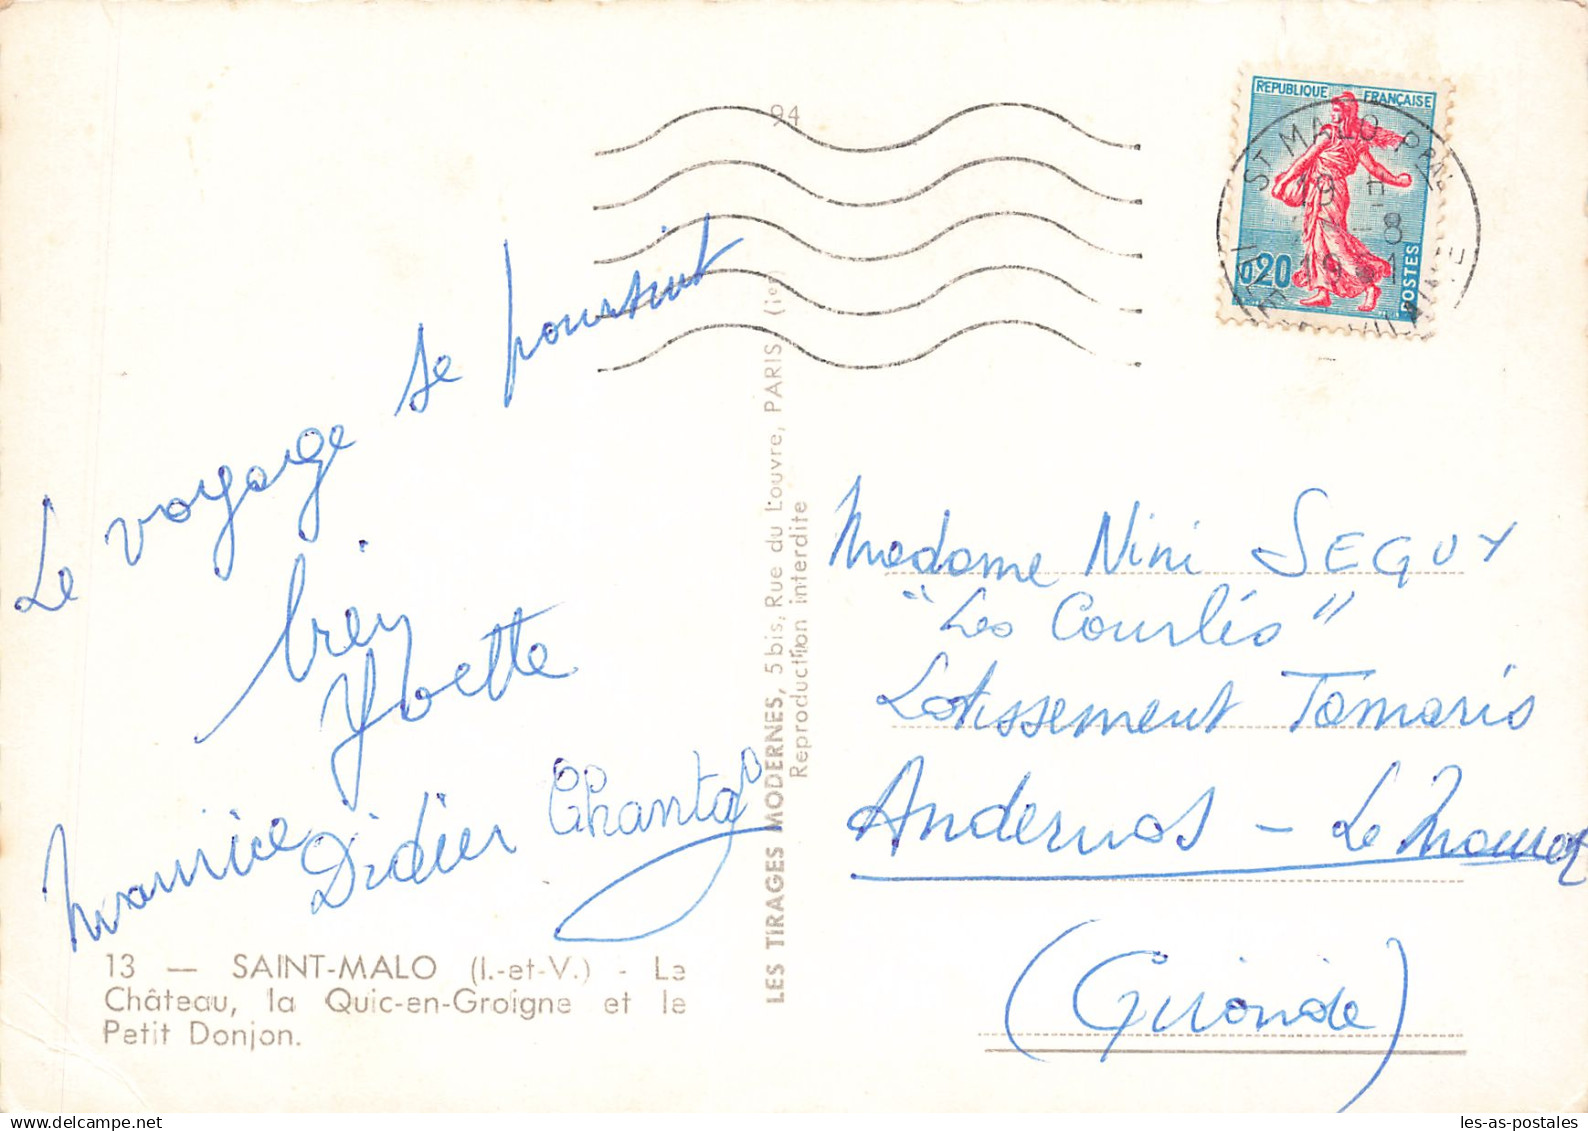 94
REPUBLIQUE FRANÇAISE
0,20
POSTES
ST MALO PAL
19 H
8
19 1
Le voyage se poursuit
bien
Yvette
Maurice Didier Chantal
13 — SAINT-MALO (I.-et-V.) - Le
Château, la Quic-en-Groigne et le
Petit Donjon.
LES TIRAGES MODERNES, 5 bis, Rue du Louvre, PARIS (ier)
Reproduction interdite
Madame Nini SEGUY
"Les Courlis"
Lotissement Tamaris
Andernos - Le Mauret
(Gironde)
les-as-postales